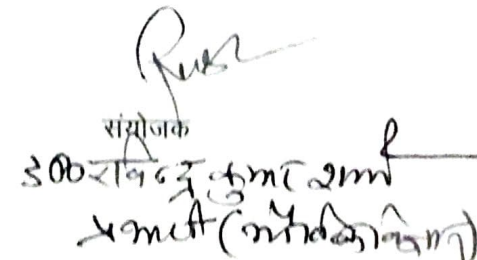 संयोजक
डॉ० रविन्द्र कुमार शर्मा
प्रभारी (भौतिक विज्ञान)